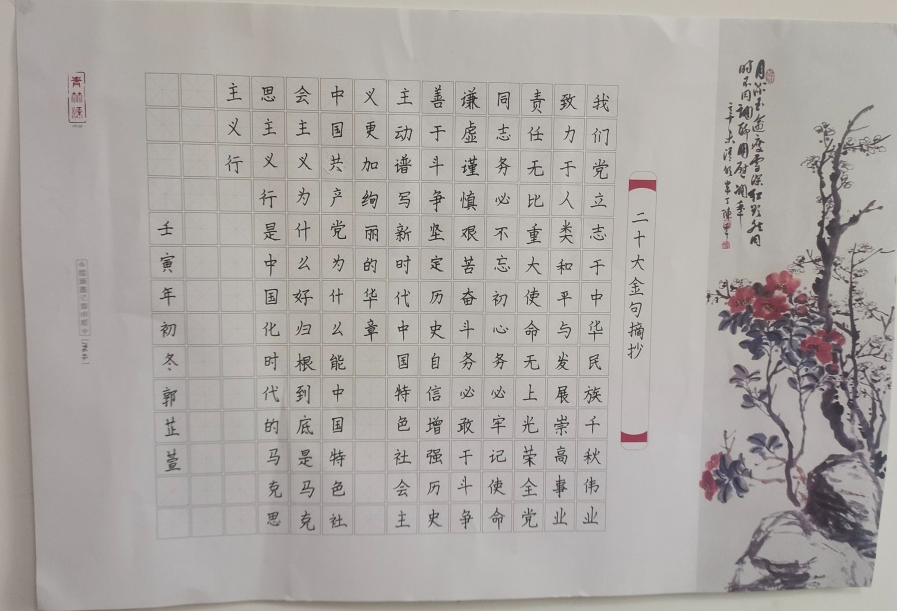 二十大金句摘抄
我们党立志于中华民族千秋伟业
致力于人类和平与发展崇高事业
责任无比重大使命无上光荣全党
同志务必不忘初心务必牢记使命
谦虚谨慎艰苦奋斗务必敢于斗争
善于斗争坚定历史自信增强历史
主动谱写新时代中国特色社会主
义更加绚丽的华章
中国共产党为什么能中国特色社
会主义为什么好归根到底是马克
思主义行是中国化时代的马克思
主义行
壬寅年初冬郭芷萱